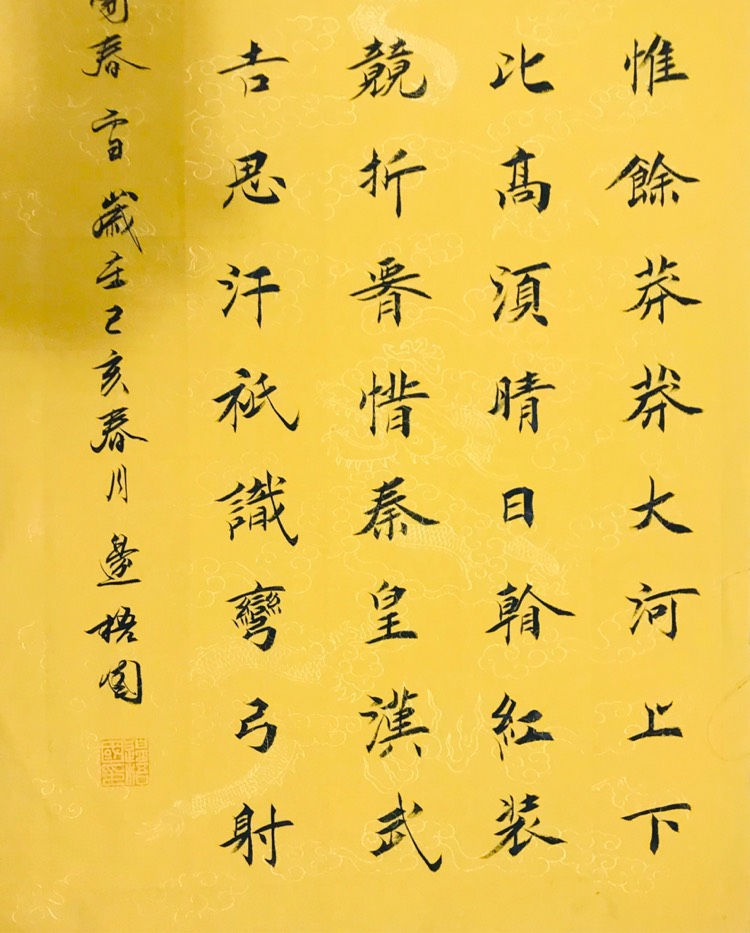 惟餘莽莽大河上下
比高須晴日看紅裝
競折腰惜秦皇漢武
吉思汗祗識彎弓射
園春雪歲在己亥春月邊梧國